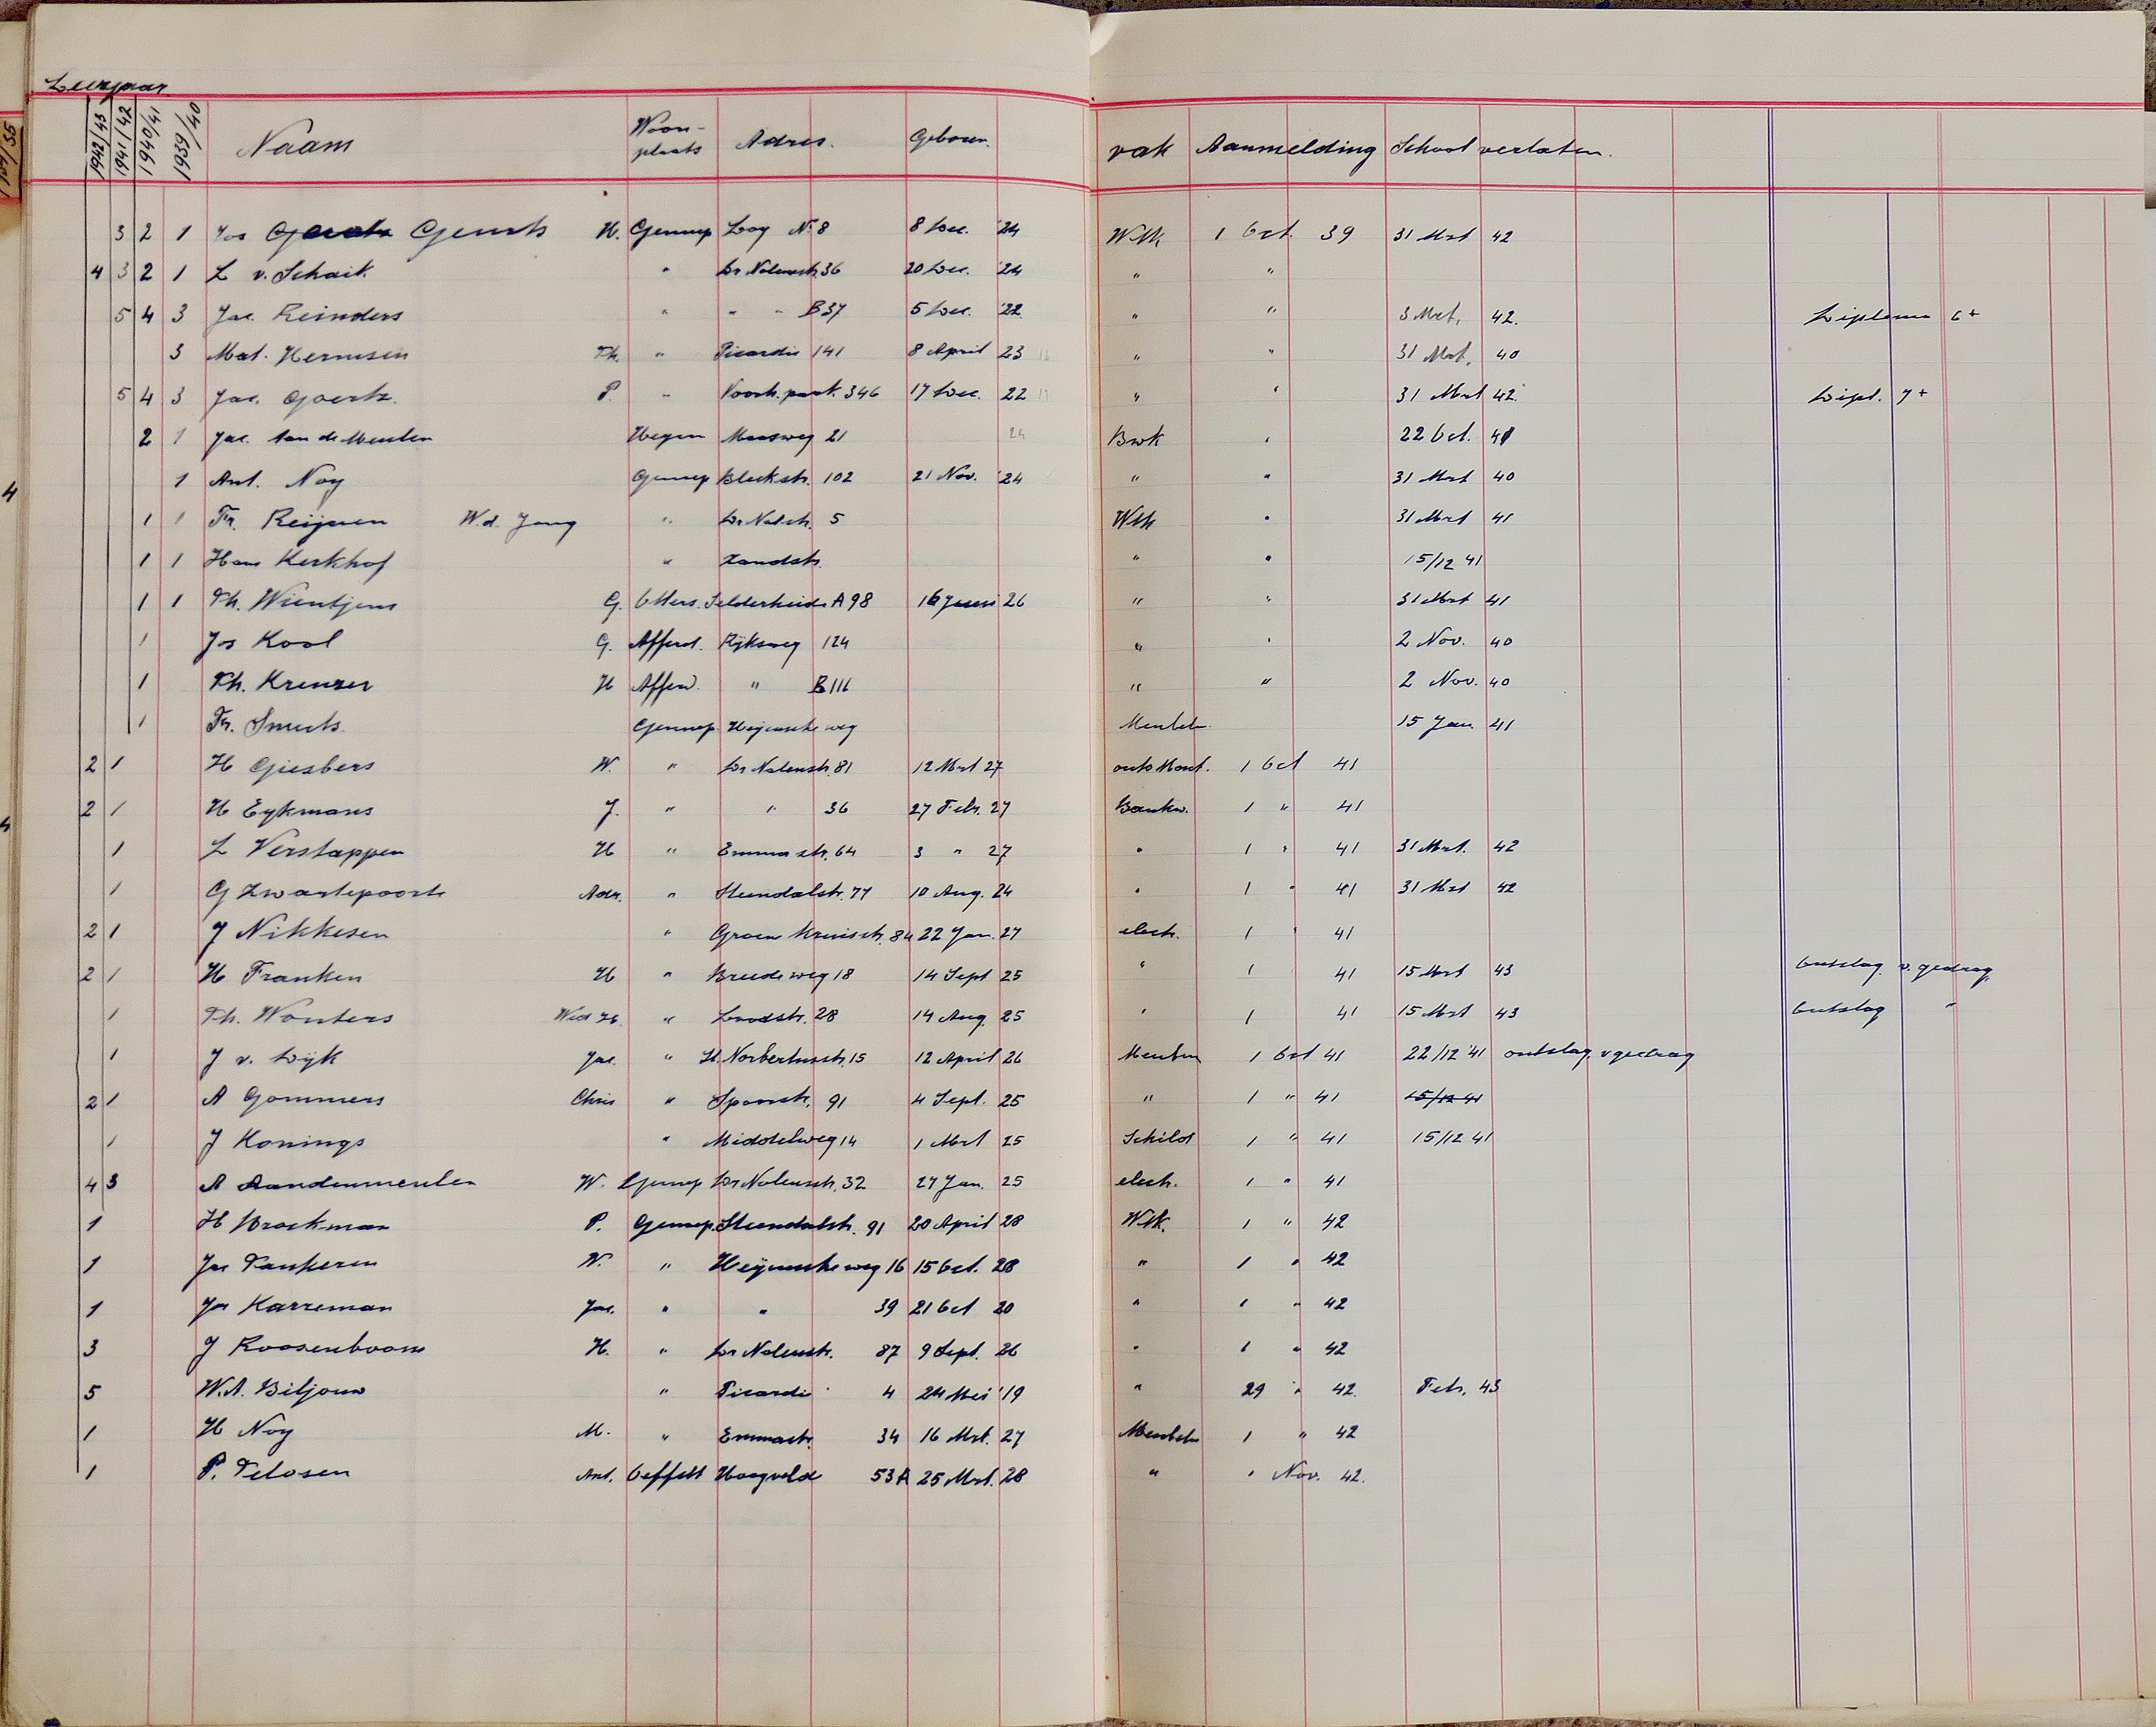 Leerjaar.
1942/43 1941/42 1940/41 1939/40 Naam Woon-plaats Adres. Geboren. vak Aanmelding School verlaten.
3 2 1 Jos Geurts H. Gennep Loy No 8 8 Dec. '24 Wtk 1 Oct. 39 31 Mrt 42
4 3 2 1 L v. Schaik " Dr Nolensstr. 36 20 Dec. '24 " "
5 4 3 Jac. Reinders " " " B 37 5 Dec. '22 " " 3 Mrt. 42. Diploma 6+
3 Mat. Hermsen Th. " Picardie 141 8 April 23 " " 31 Mrt. 40
5 4 3 Jac. Goertz. P. " 346 17 Dec. 22 " " 31 Mrt 42. Dipl. 7+
2 1 Jac. van de Meulen Heyen Maasweg 21 24 Bwk " 22 Oct. 41
1 Ant. Noy Gennep Bleekstr. 102 21 Nov. '24 " " 31 Mrt 40
1 1 Fr. Reijnen W.d. Jong " Dr Nolstr. 5 Wtk " 31 Mrt 41
1 1 Han Kerkhof " Zandstr. " " 15/12 41
1 1 Th. Wientjens G. Otters. Selderheide A 98 16 Juni 26 " " 31 Mrt 41
1 Jos Kool G. Afferd. Rijksweg 124 " " 2 Nov. 40
1 Th. Kreuzer H Afferd. " B 116 " " 2 Nov. 40
1 Fr. Smets. Gennep Heijensche weg Meubelm. 15 Jan. 41
2 1 H Giesbers W. " Dr Nolensstr. 81 12 Mrt 27 auto Mont. 1 Oct 41
2 1 H Eykmans J. " " 36 27 Febr. 27 Bankw. 1 " 41
1 L Verstappen H " Emmastr. 64 3 " 27 " 1 " 41 31 Mrt. 42
1 G Zwartepoorte Adr. " Steendalstr. 77 10 Aug. 24 " 1 " 41 31 Mrt 42
2 1 J Nikkesen " Groen Kruisstr. 84 22 Jan. 27 electr. 1 " 41
2 1 H Franken H " Breedeweg 18 14 Sept 25 " 1 41 15 Mrt 43 Ontslag v. gedrag.
1 Th. Wouters Wed H. " Loodstr. 28 14 Aug. 25 " 1 41 15 Mrt 43 Ontslag "
1 J v. Dijk Jac. " St. Norbertusstr. 15 12 April 26 Meubm 1 Oct 41 22/12 '41 ontslag v gedrag
2 1 A Gommers Chris " Spoorstr. 91 4 Sept. 25 " 1 " 41 15/12 41
1 J Konings " Middelweg 14 1 Mrt 25 Schild 1 " 41 15/12 41
4 3 A Aandenmeulen W. Gennep Dr Nolensstr. 32 27 Jan. 25 electr. 1 " 41
1 H Brockman P. Gennep. Steendalstr. 91 20 April 28 Wtk. 1 " 42
1 Jac Tankeren W. " Heijensche weg 16 15 Oct. 28 " 1 " 42
1 Jos Karreman Jac. " " 39 21 Oct 20 " 1 " 42
3 J Roosenboom H. " Dr Nolensstr. 87 9 Sept. 26 " 1 " 42
5 W.A. Biljouw " Picardie 4 24 Mei '19 " 29 " 42. Febr. 43
1 H Noy M. " Emmastr. 34 16 Mrt. 27 Meubelm 1 " 42
1 P. Telosen Ant. Oeffelt Hoogveld 53A 25 Mrt. 28 " " Nov. 42.